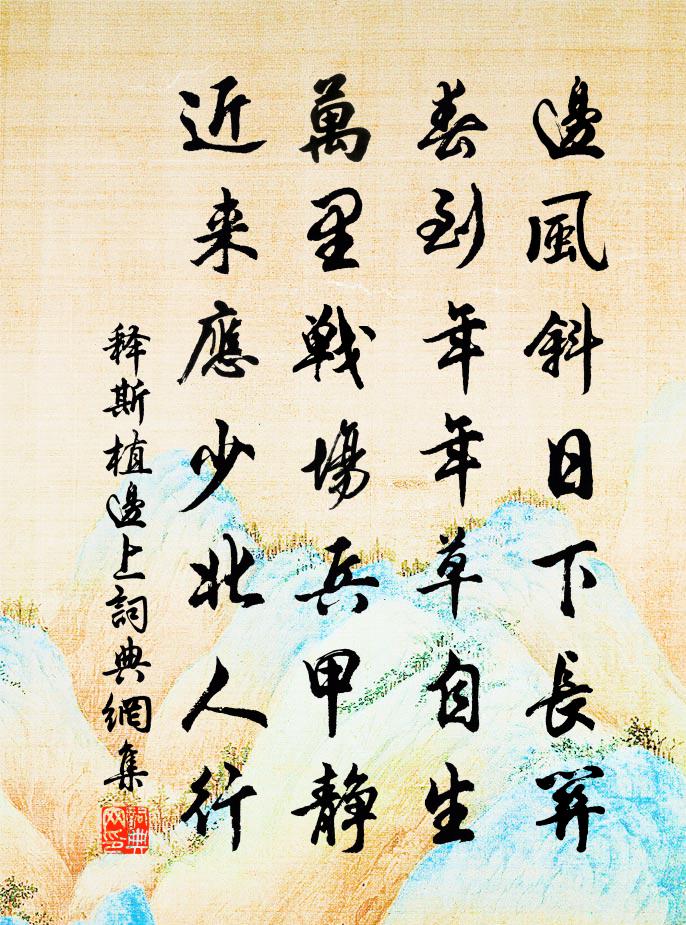 邊風斜日下長
春到年年草自生
萬里戰場兵甲靜
近來應少北人行
释斯植邊上詞典網集
詞典
网印